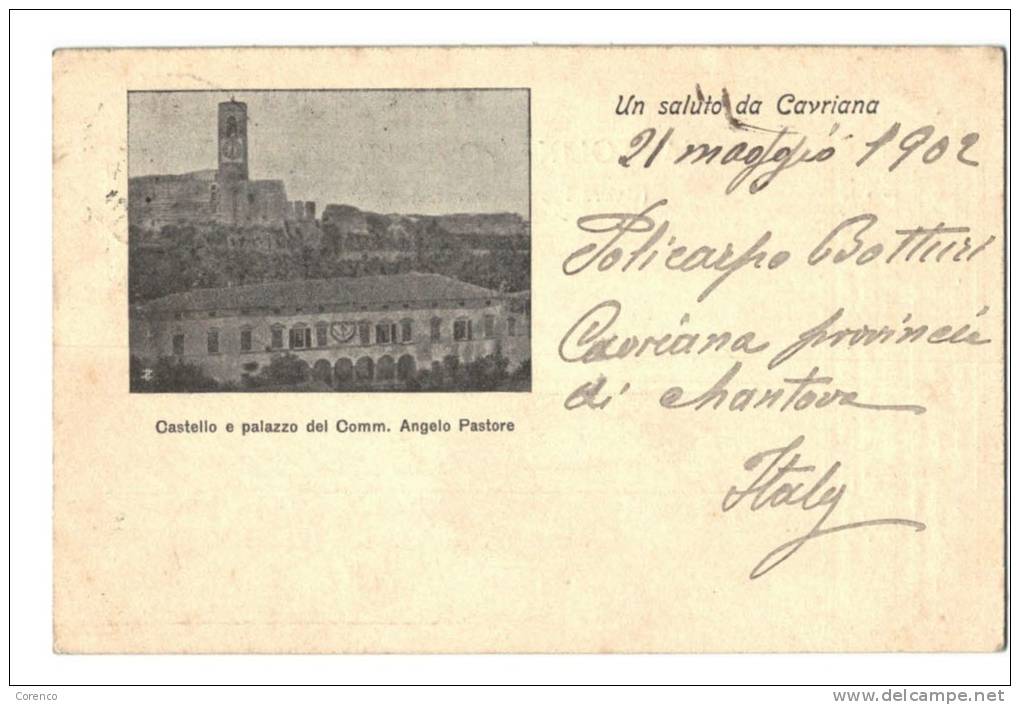 Un saluto da Cavriana
21 maggio 1902
Policarpo Botturi
Cavriana provincia
di Mantova
Italy
Castello e palazzo del Comm. Angelo Pastore
Corenco
www.delcampe.net